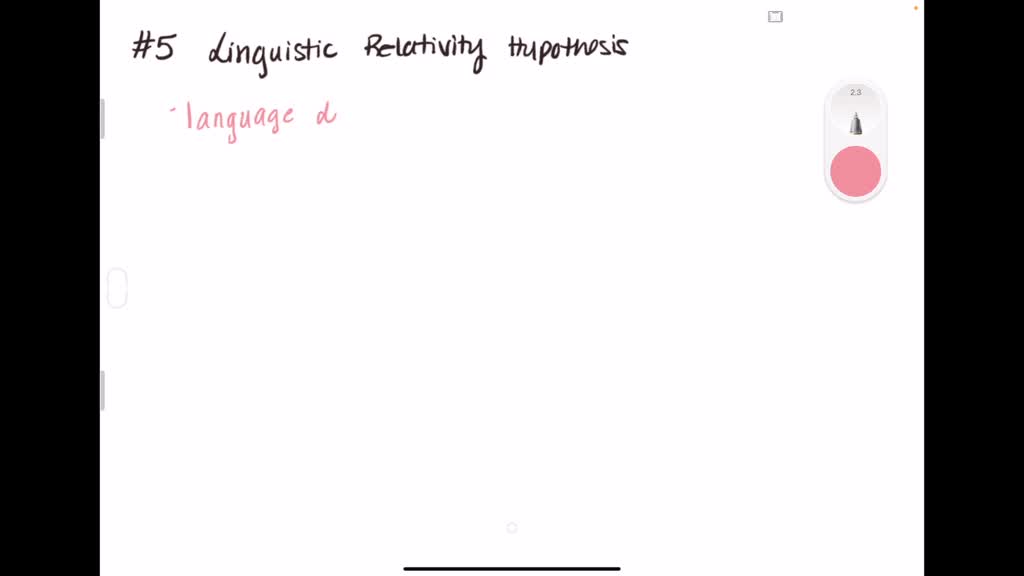 #5 Linguistic Relativity Hypothesis
- language d
2.3